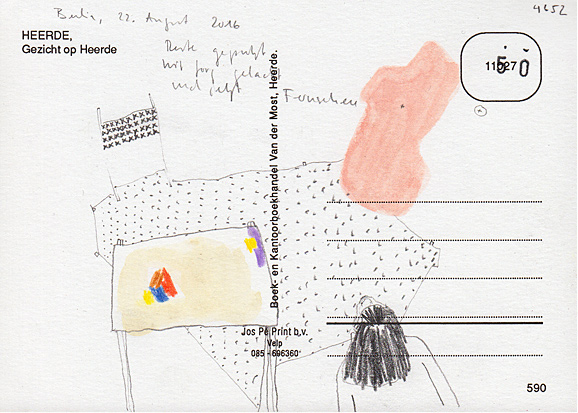 Berlin, 22. August 2016
4652
HEERDE,
Gezicht op Heerde
geputzt
mit
gelacht
und jetzt
Fernsehen
11027
50
Boek- en Kantoorboekhandel Van der Most, Heerde.
Jos Pé Print b.v.
Velp
085 - 696360
590